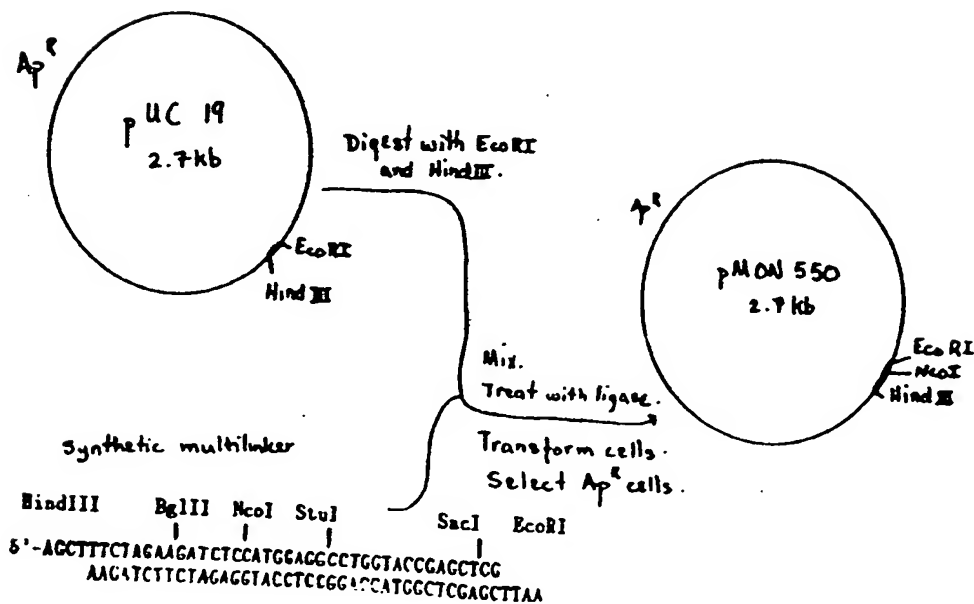 Ap^R
pUC 19
2.7 kb
EcoRI
Hind III
Digest with EcoRI
and Hind III.
Ap^R
pMON 550
2.7 kb
EcoRI
NcoI
Hind III
Mix.
Treat with ligase.
Transform cells.
Select Ap^R cells.
Synthetic multilinker
HindIII BglII NcoI StuI SacI EcoRI
5'-AGCTTTCTAGAAGATCTCCATGGAGGCCTGGTACCGAGCTCG